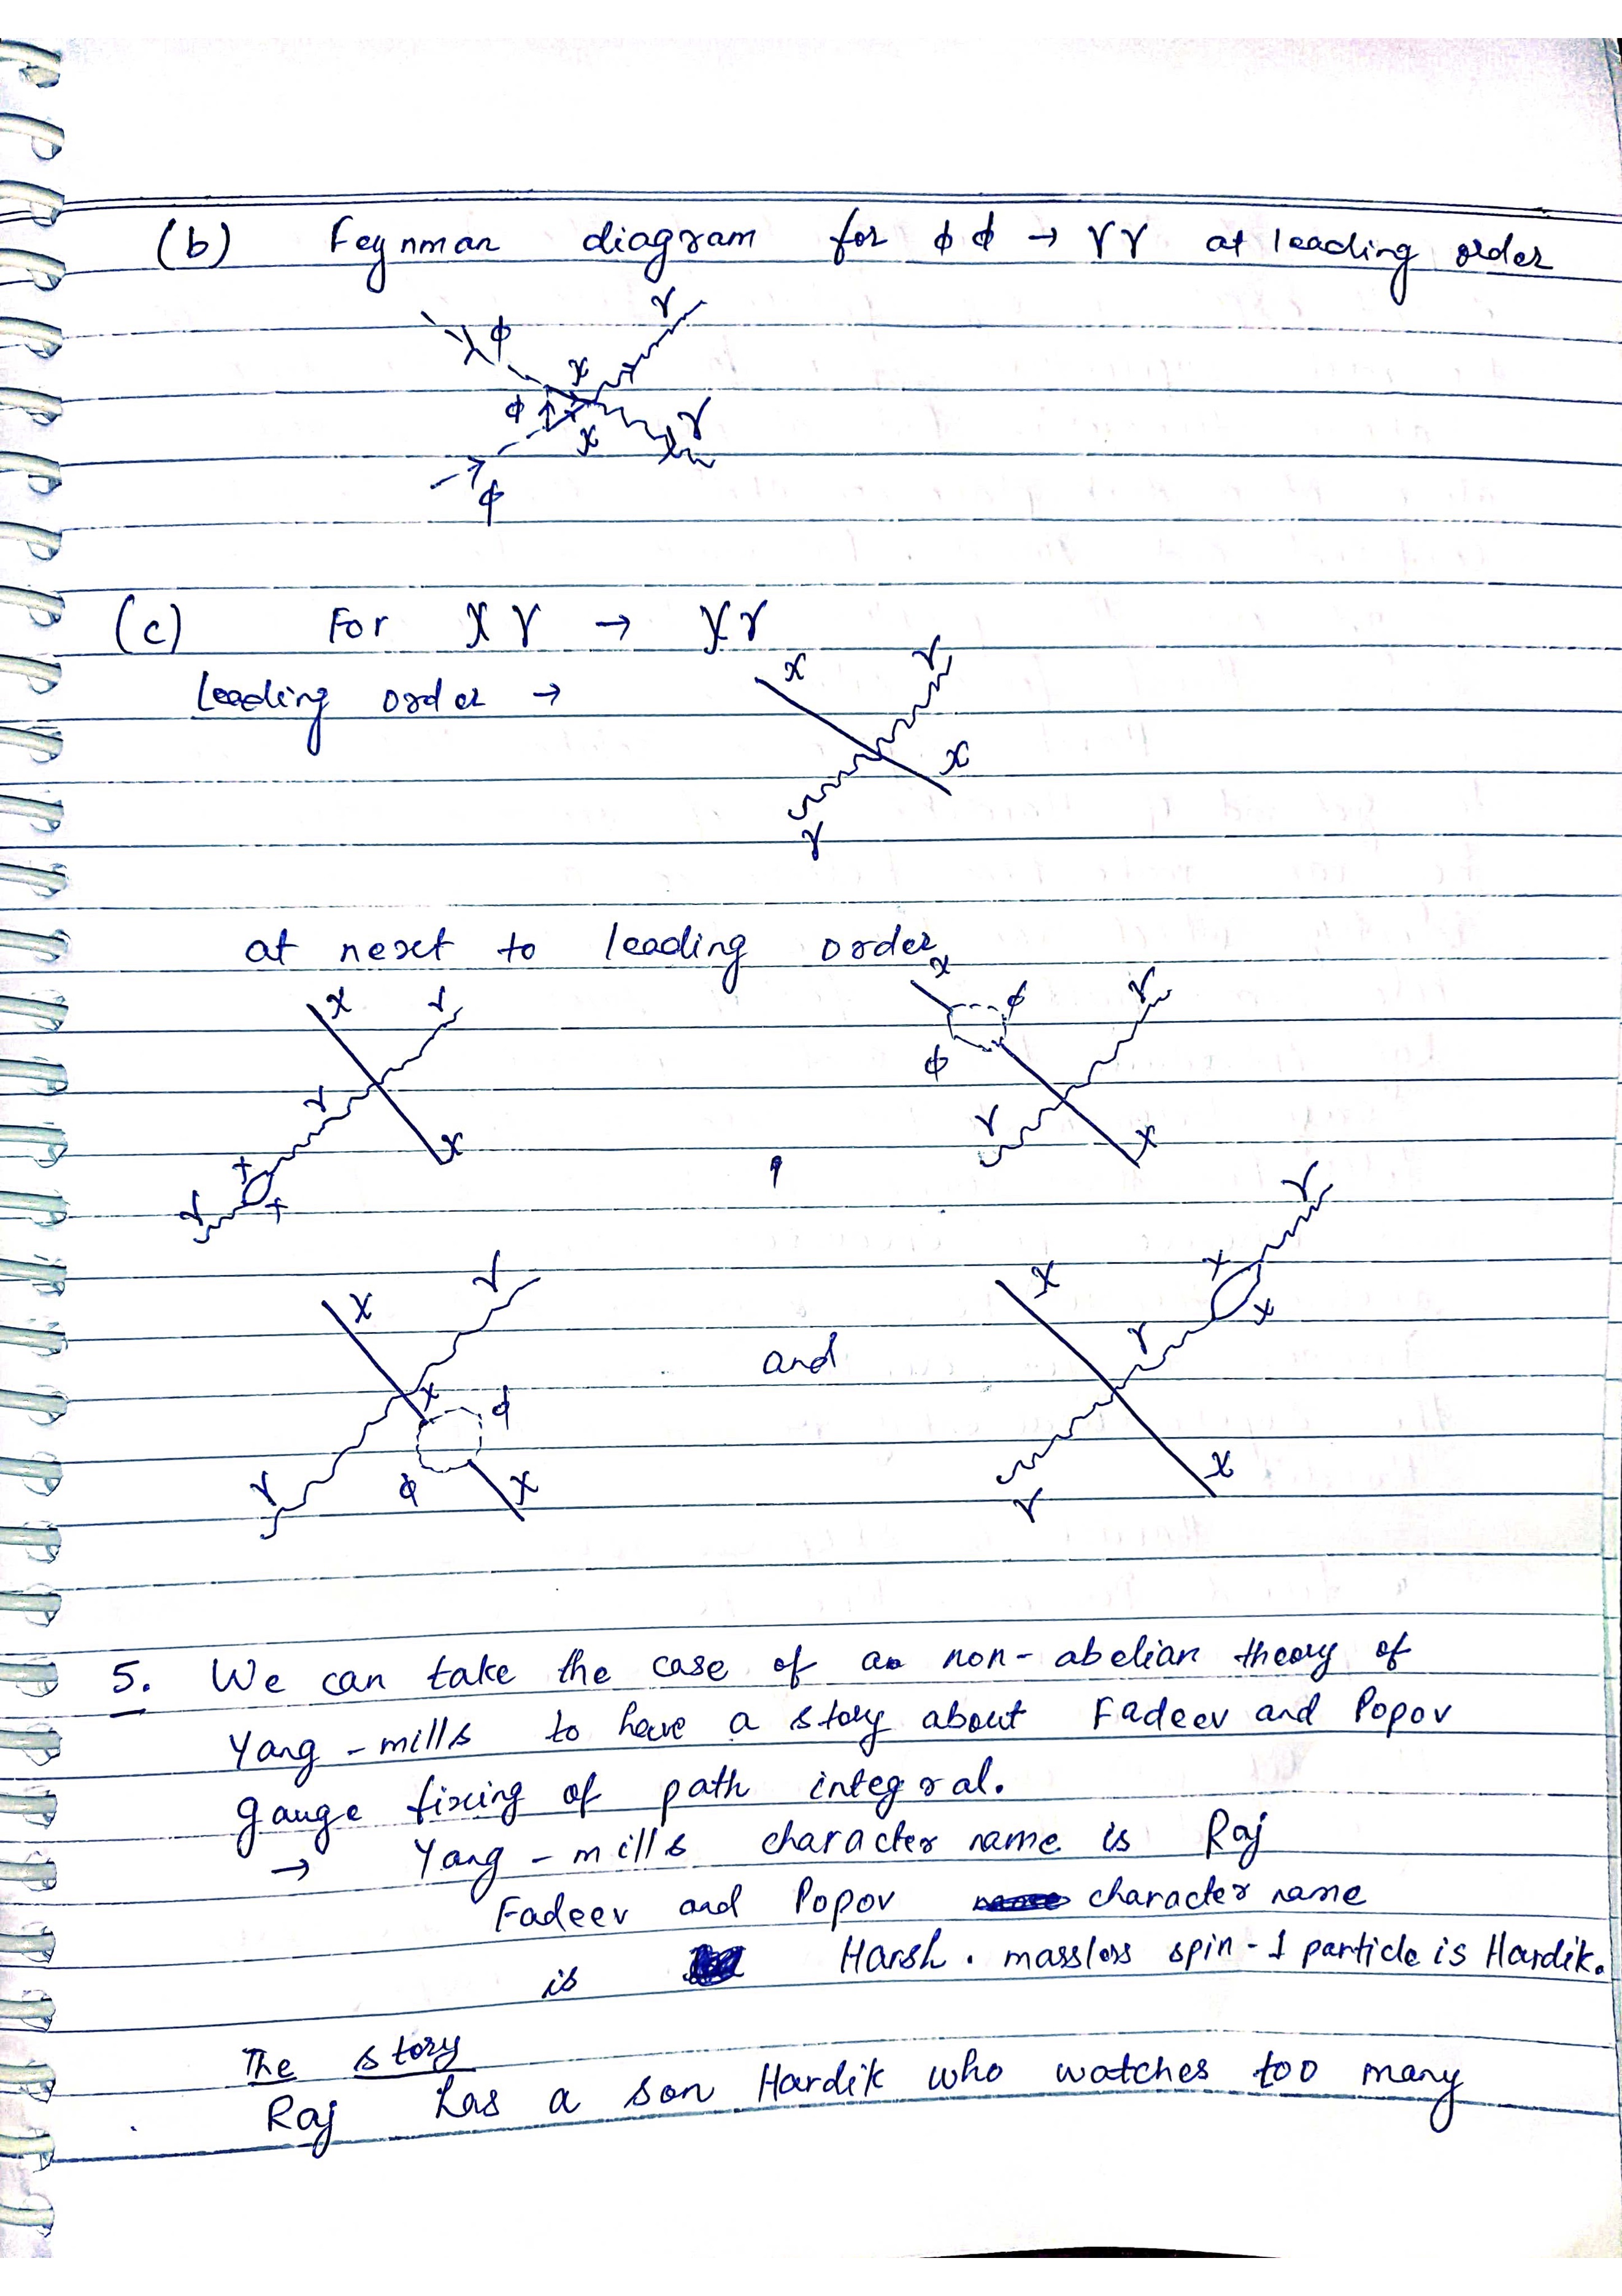 (b) Feynman diagram for ϕ ϕ → γ γ at leading order
ϕ γ
χ
ϕ γ
χ
ϕ
(c) For χ γ → χ γ
leading order →
χ γ
χ
γ
at next to leading order
χ γ
γ
χ
χ
χ
γ
χ
ϕ γ
ϕ
γ
χ
,
χ γ
χ
ϕ
γ ϕ χ
and
γ
χ χ
χ
γ
χ
γ
5. We can take the case of a non-abelian theory of
Yang-mills to have a story about Fadeev and Popov
gauge fixing of path integral.
→ Yang-mills character name is Raj
Fadeev and Popov character name
is Harsh. massless spin-1 particle is Hardik.
The story
Raj has a son Hardik who watches too many